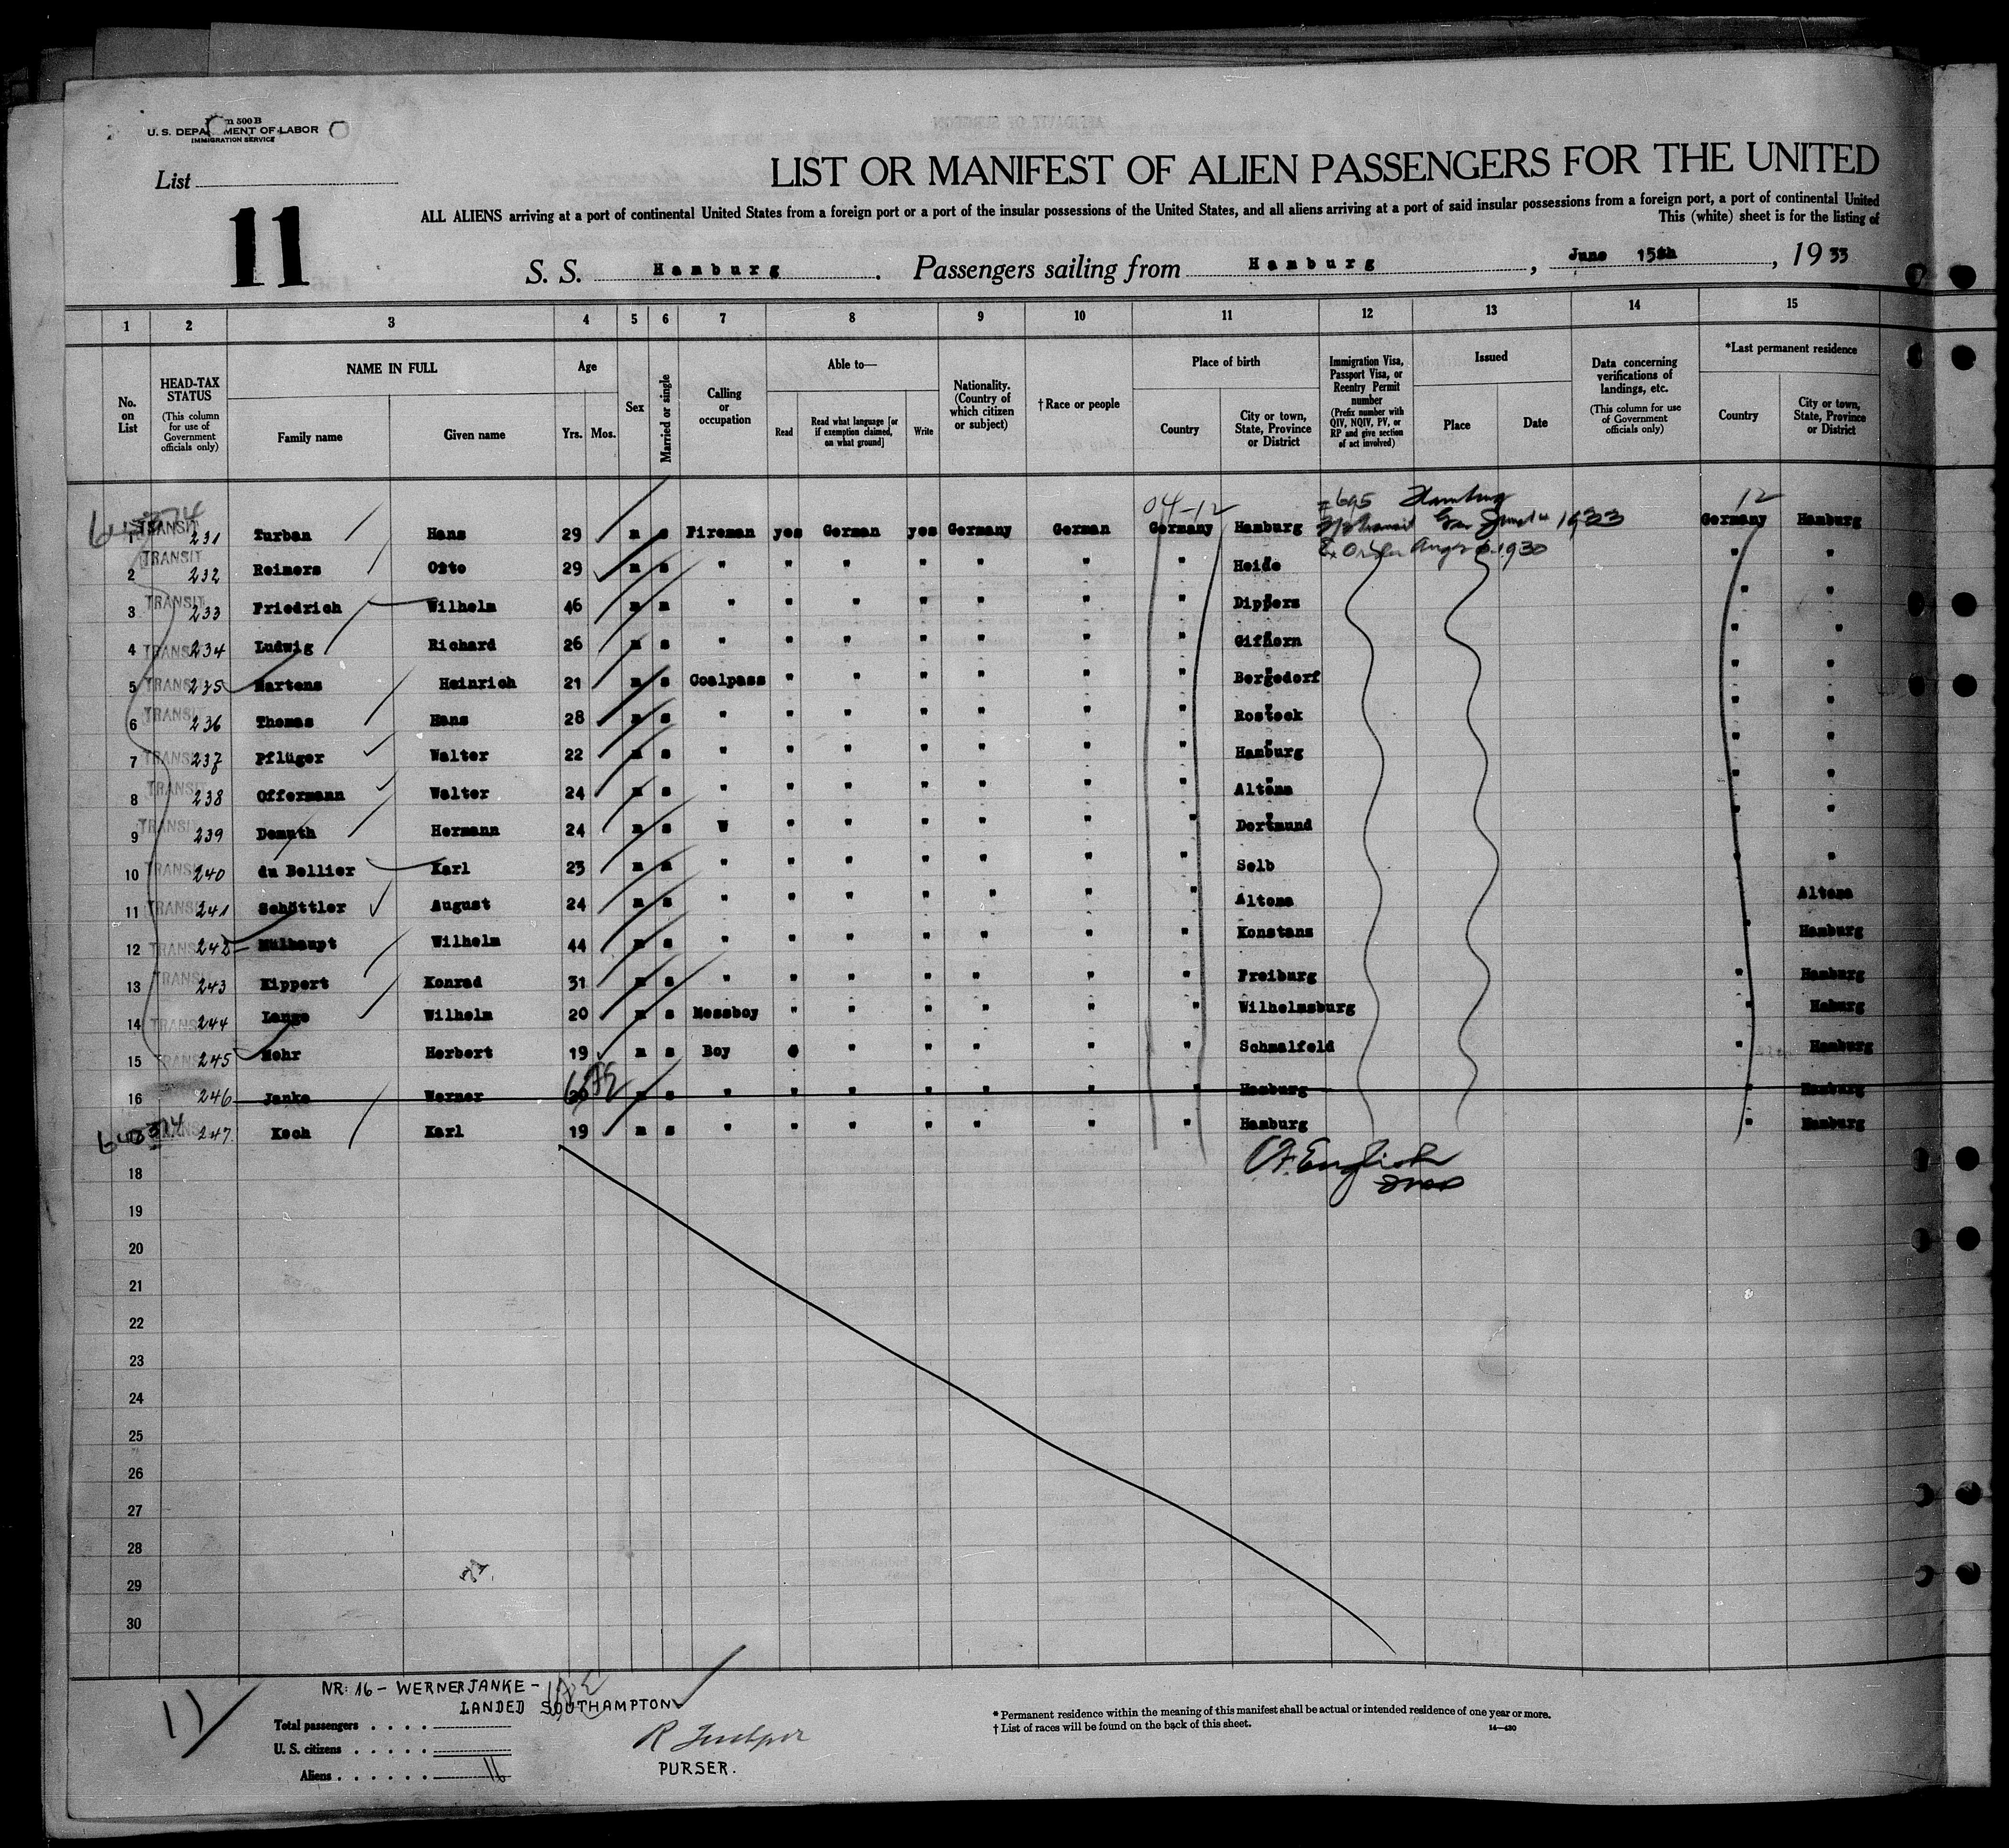 U. S. DEPA MENT OF LABOR
IMMIGRATION SERVICE
List
11
LIST OR MANIFEST OF ALIEN PASSENGERS FOR THE UNITED
ALL ALIENS arriving at a port of continental United States from a foreign port or a port of the insular possessions of the United States, and all aliens arriving at a port of said insular possessions from a foreign port, a port of continental United
This (white) sheet is for the listing of
S. S. Hamburg. Passengers sailing from Hamburg, June 15th, 1933
1 2 3 4 5 6 7 8 9 10 11 12 13 14 15
No. on List
HEAD-TAX STATUS (This column for use of Government officials only)
NAME IN FULL
Family name
Given name
Age
Yrs. Mos.
Sex
Married or single
Calling or occupation
Able to—
Read
Read what language [or if exemption claimed, on what ground]
Write
Nationality. (Country of which citizen or subject)
† Race or people
Place of birth
Country
City or town, State, Province or District
Immigration Visa, Passport Visa, or Reentry Permit number (Prefix number with QIV, NQIV, PV, or RP and give section of act involved)
Issued
Place
Date
Data concerning verifications of landings, etc. (This column for use of Government officials only)
*Last permanent residence
Country
City or town, State, Province or District
04-12 Hamburg 12
1 TRANSIT 231 Turban Hans 29 m s Fireman yes German yes Germany German Germany Hamburg 1933 Germany Hamburg
2 TRANSIT 232 Reiners Otto 29 m s " " " " " " " Heide 1930 " "
3 TRANSIT 233 Friedrich Wilhelm 46 m m " " " " " " " Dippers " "
4 TRANSIT 234 Ludwig Richard 26 m s " " " " " " " Gifhorn " "
5 TRANSIT 235 Martens Heinrich 21 m s Coalpass " " " " " " Bergedorf " "
6 TRANSIT 236 Thomas Hans 28 m s " " " " " " " Rostock " "
7 TRANSIT 237 Pflüger Walter 22 m s " " " " " " " Hamburg " "
8 TRANSIT 238 Offermann Walter 24 m s " " " " " " " Altona " "
9 TRANSIT 239 Demuth Hermann 24 m s " " " " " " " Dortmund " "
10 TRANSIT 240 du Bellier Karl 23 m m " " " " " " " Selb " "
11 TRANSIT 241 Schöttler August 24 m s " " " " " " " Altona " Altona
12 TRANSIT 242 Mülhaupt Wilhelm 44 m s " " " " " " " Konstans " Hamburg
13 TRANSIT 243 Kippert Konrad 31 m s " " " " " " " Freiburg " Hamburg
14 TRANSIT 244 Lange Wilhelm 20 m s Messboy " " " " " " Wilhelmsburg " Haburg
15 TRANSIT 245 Mohr Herbert 19 m s Boy " " " " " " Schmalfeld " Hamburg
16 246 Janke Werner 20 m s " " " " " " " Hamburg " Hamburg
247 Koch Karl 19 m s " " " " " " " Hamburg " Hamburg
18
19
20
21
22
23
24
25
26
27
28
29
30
NR: 16 - WERNER JANKE -
LANDED SOUTHAMPTON
11
Total passengers . . . .
U. S. citizens . . . . .
Aliens . . . . . . 16
PURSER.
* Permanent residence within the meaning of this manifest shall be actual or intended residence of one year or more.
† List of races will be found on the back of this sheet.
14—430